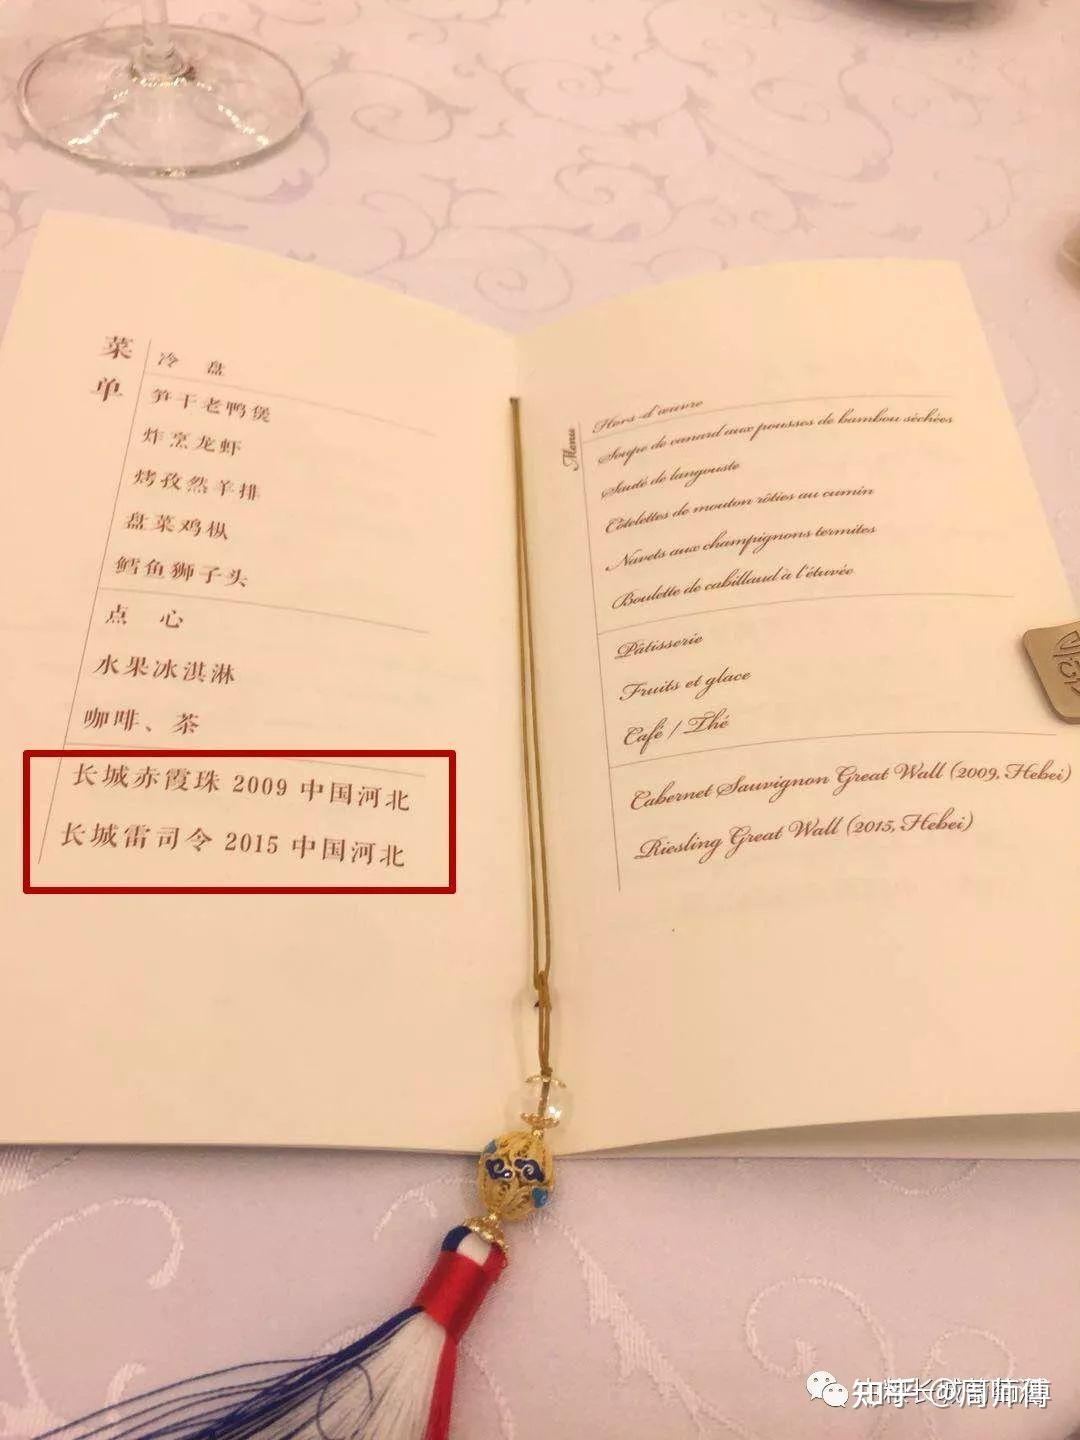 菜单
冷 盘
笋干老鸭煲
炸烹龙虾
烤孜然羊排
盘菜鸡枞
鳕鱼狮子头
点 心
水果冰淇淋
咖啡、茶
长城赤霞珠 2009 中国河北
长城雷司令 2015 中国河北
Menu
Hors-d'œuvre
Soupe de canard aux pousses de bambou séchées
Sauté de langouste
Côtelettes de mouton rôties au cumin
Navets aux champignons termites
Boulette de cabillaud à l'étuvée
Pâtisserie
Fruits et glace
Café / Thé
Cabernet Sauvignon Great Wall (2009, Hebei)
Riesling Great Wall (2015, Hebei)
知乎 @周师傅